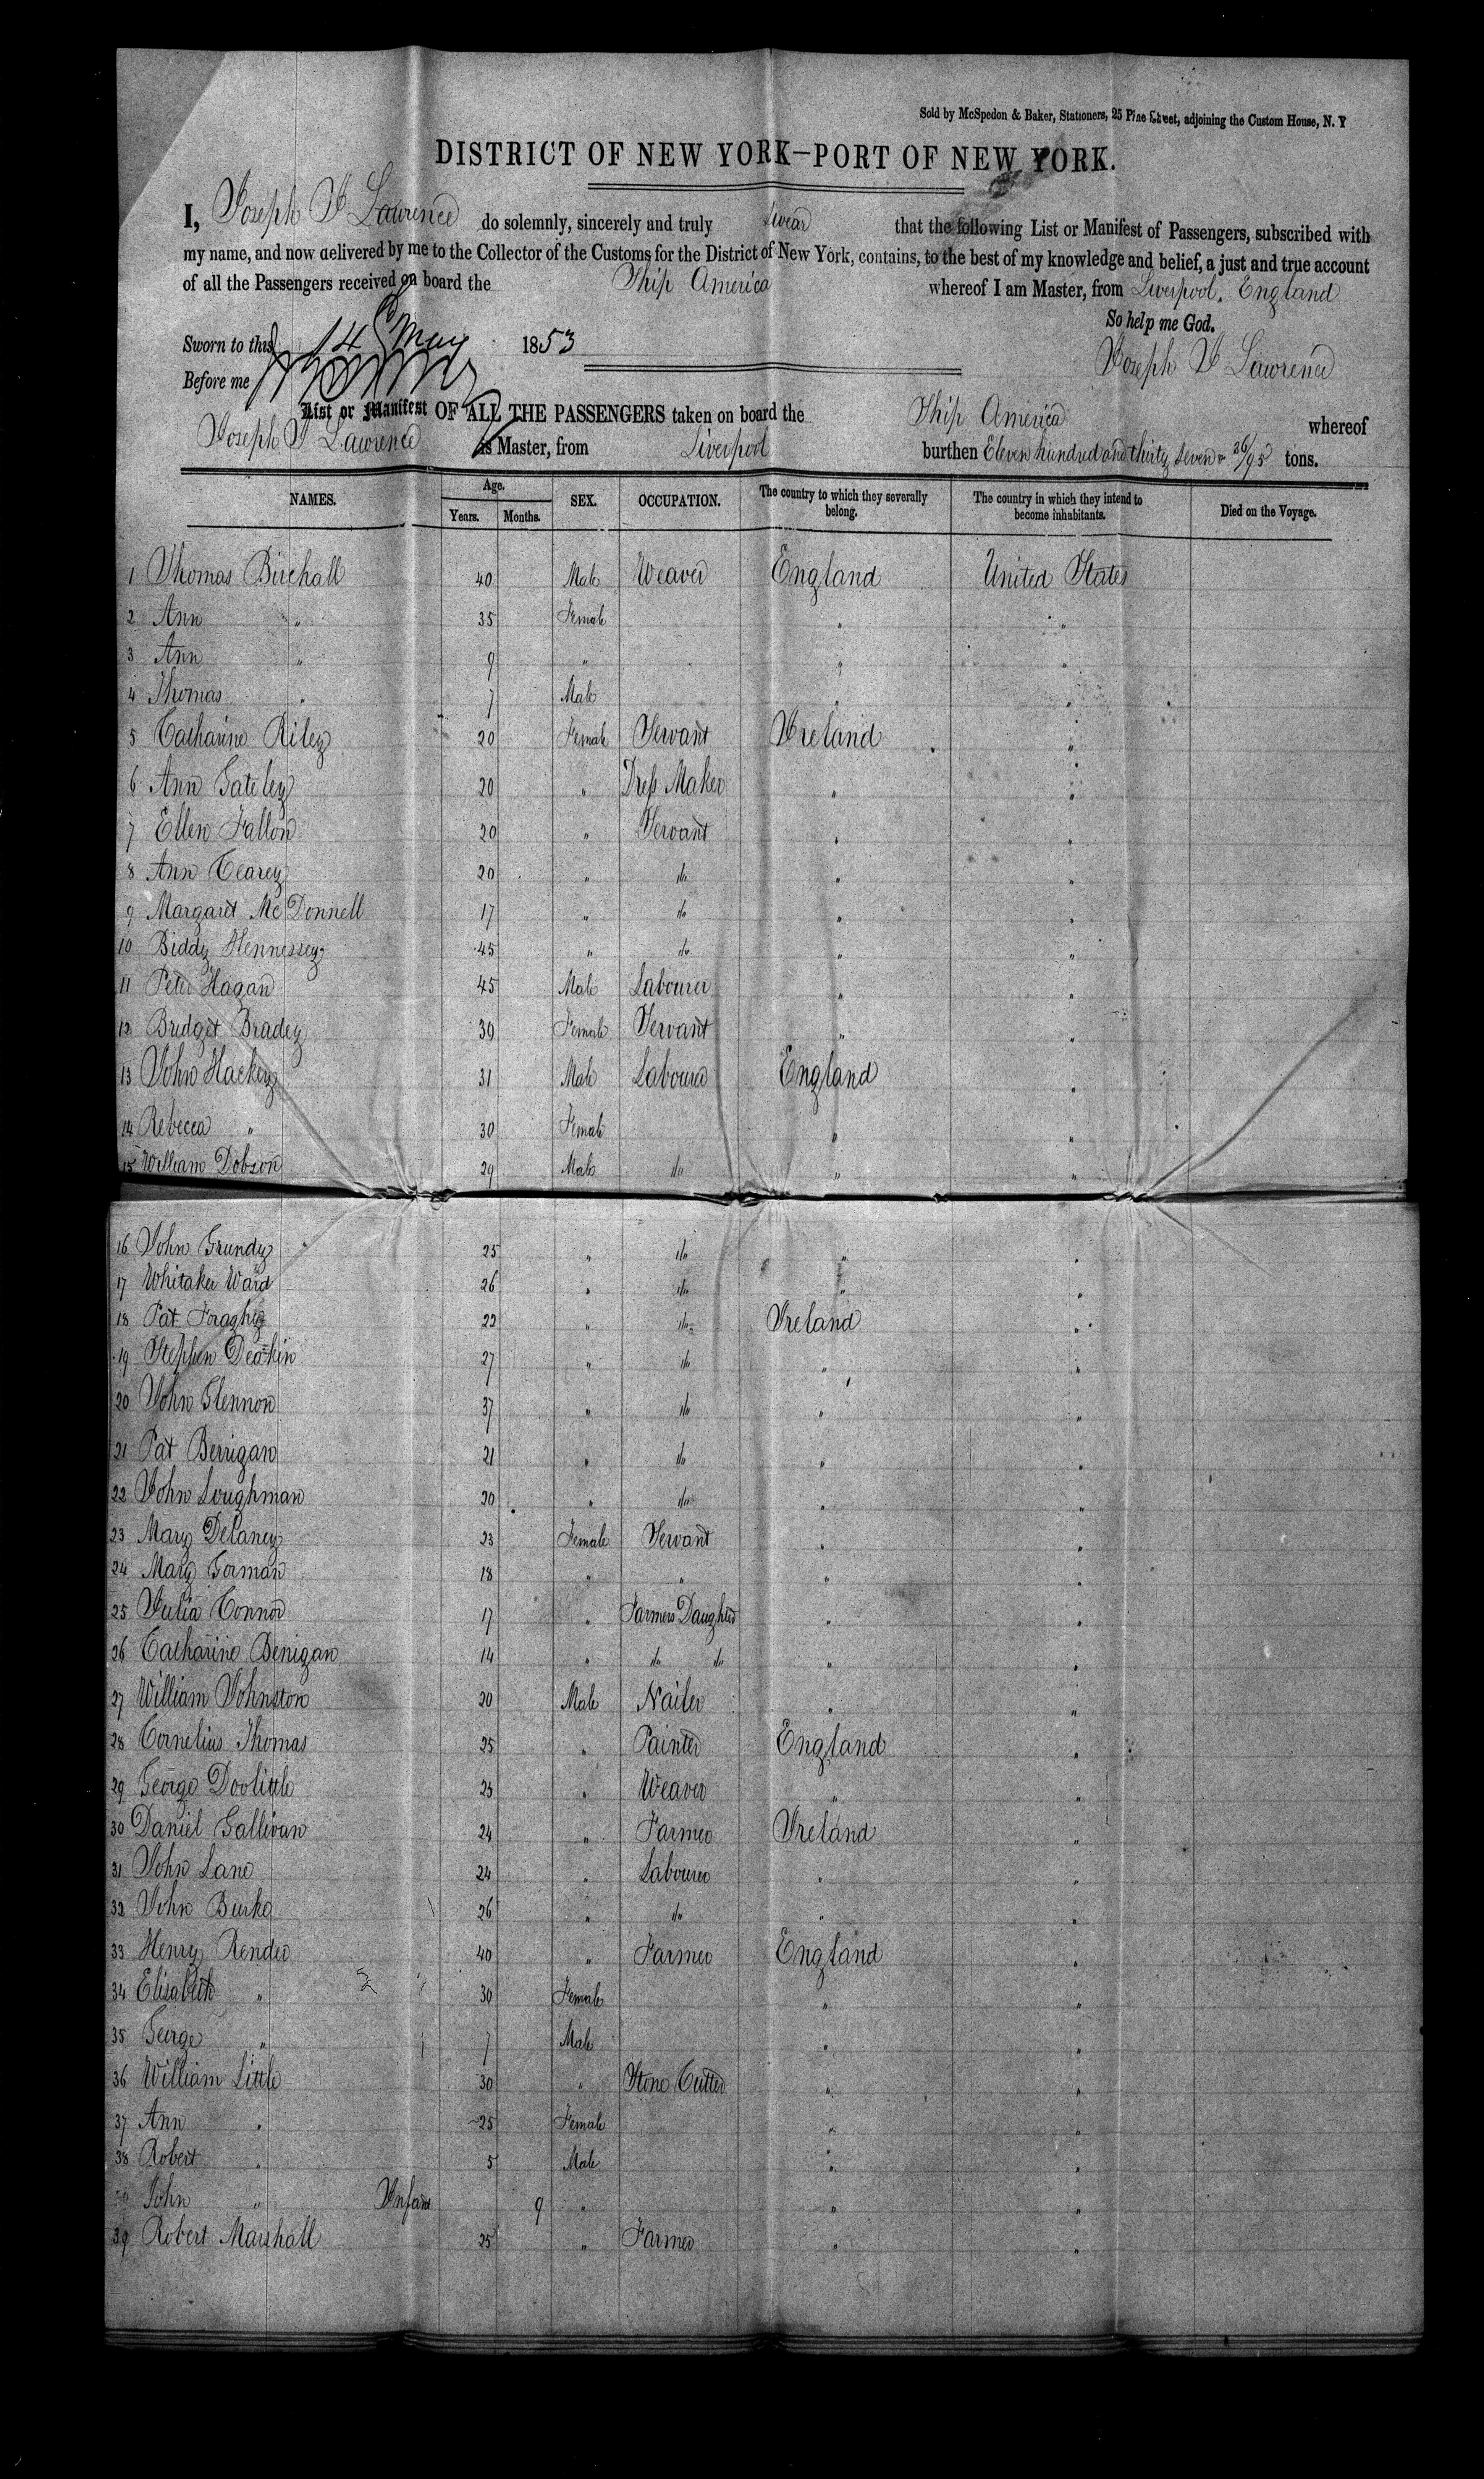 Sold by McSpedon & Baker, Stationers, 25 Pine Street, adjoining the Custom House, N. Y
DISTRICT OF NEW YORK—PORT OF NEW YORK.
I, Joseph J Lawrence do solemnly, sincerely and truly swear that the following List or Manifest of Passengers, subscribed with
my name, and now delivered by me to the Collector of the Customs for the District of New York, contains, to the best of my knowledge and belief, a just and true account
of all the Passengers received on board the Ship America whereof I am Master, from Liverpool, England
So help me God.
Sworn to this 14 May 1853
Joseph J Lawrence
Before me
List or Manifest OF ALL THE PASSENGERS taken on board the Ship America whereof
Joseph J Lawrence is Master, from Liverpool burthen Eleven hundred and thirty seven & 26/95 tons.
NAMES. Age. Years. Months. SEX. OCCUPATION. The country to which they severally belong. The country in which they intend to become inhabitants. Died on the Voyage.
1 Thomas Birchall 40 Male Weaver England United States
2 Ann " 35 Female " "
3 Ann " 9 " " "
4 Thomas " 7 Male " "
5 Catharine Riley 20 Female Servant Ireland "
6 Ann Gateley 20 " Dress Maker " "
7 Ellen Fallon 20 " Servant " "
8 Ann Cearey 20 " do " "
9 Margaret McDonnell 17 " do " "
10 Biddy Hennessey 45 " do " "
11 Peter Hagan 45 Male Labourer " "
12 Bridget Bradey 30 Female Servant " "
13 John Hackey 31 Male Labourer England "
14 Rebecca " 30 Female " "
15 William Dobson 29 Male do " "
16 John Grundy 25 " do " "
17 Whitaker Ward 26 " do " "
18 Pat Foraghy 22 " do Ireland "
19 Stephen Deakin 27 " do " "
20 John Glennon 37 " do " "
21 Pat Berrigan 21 " do " "
22 John Loughman 20 " do " "
23 Mary Delaney 23 Female Servant " "
24 Mary Gorman 18 " " " "
25 Julia Connor 17 " Farmers Daughter " "
26 Catharine Benigan 14 " do do " "
27 William Johnston 20 Male Nailer " "
28 Cornelius Thomas 25 " Painter England "
29 George Doolittle 25 " Weaver " "
30 Daniel Gallivan 24 " Farmer Ireland "
31 John Lane 24 " Labourer " "
32 John Burke 26 " do " "
33 Henry Render 40 " Farmer England "
34 Elisabeth " 2 30 Female " "
35 George " 7 Male " "
36 William Little 30 " Stone Cutter " "
37 Ann " 25 Female " "
38 Robert " 5 Male " "
John " Infant 9 " " "
39 Robert Marshall 25 " Farmer " "